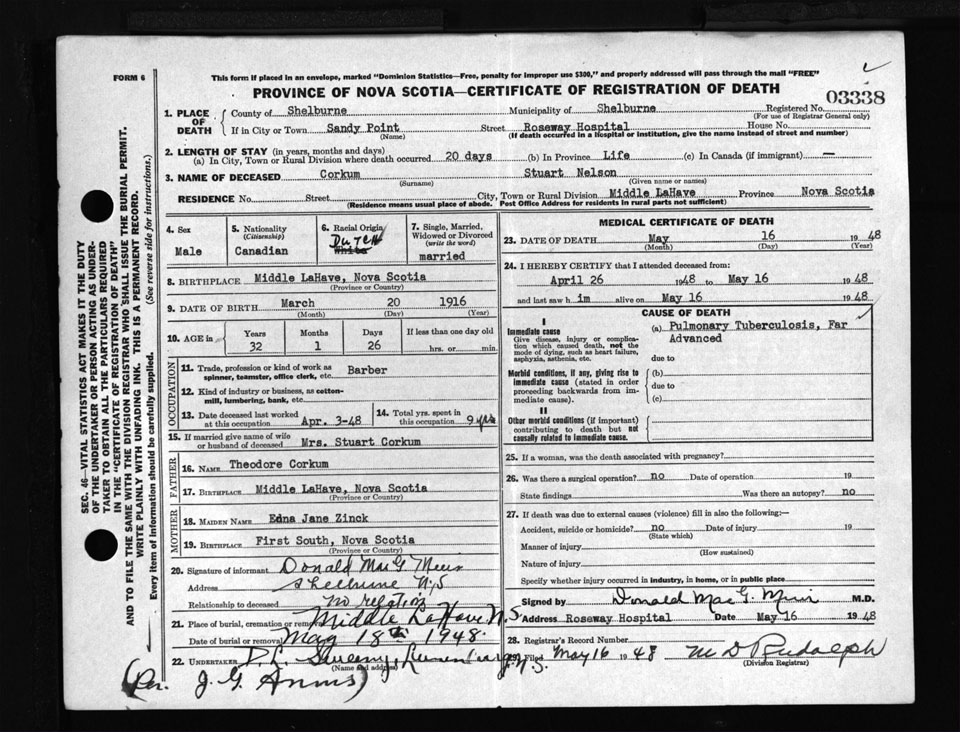 FORM 6
This form if placed in an envelope, marked "Dominion Statistics—Free, penalty for improper use $300," and properly addressed will pass through the mail "FREE"
PROVINCE OF NOVA SCOTIA—CERTIFICATE OF REGISTRATION OF DEATH
03338
SEC. 46—VITAL STATISTICS ACT MAKES IT THE DUTY OF THE UNDERTAKER OR PERSON ACTING AS UNDERTAKER TO OBTAIN ALL THE PARTICULARS REQUIRED IN THE "CERTIFICATE OF REGISTRATION OF DEATH"
AND TO FILE THE SAME WITH THE DIVISION REGISTRAR WHO SHALL ISSUE THE BURIAL PERMIT.
WRITE PLAINLY WITH UNFADING INK. THIS IS A PERMANENT RECORD.
Every item of information should be carefully supplied. (See reverse side for instructions.)
1. PLACE OF DEATH County of Shelburne Municipality of Shelburne Registered No.
(For use of Registrar General only)
If in City or Town Sandy Point Street Roseway Hospital House No.
(Name) (If death occurred in a hospital or institution, give the name instead of street and number)
2. LENGTH OF STAY (in years, months and days)
(a) In City, Town or Rural Division where death occurred 20 days (b) In Province Life (c) In Canada (if immigrant) —
3. NAME OF DECEASED Corkum Stuart Nelson
(Surname) (Given name or names)
RESIDENCE No. Street City, Town or Rural Division Middle LaHave Province Nova Scotia
(Residence means usual place of abode. Post Office Address for residents in rural parts not sufficient)
4. Sex Male
5. Nationality (Citizenship) Canadian
6. Racial Origin DUTCH White
7. Single, Married, Widowed or Divorced (write the word) married
8. BIRTHPLACE Middle LaHave, Nova Scotia
(Province or Country)
9. DATE OF BIRTH March 20 1916
(Month) (Day) (Year)
10. AGE in Years Months Days If less than one day old
32 1 26 hrs. or min.
OCCUPATION
11. Trade, profession or kind of work as spinner, teamster, office clerk, etc. Barber
12. Kind of industry or business, as cotton-mill, lumbering, bank, etc.
13. Date deceased last worked at this occupation Apr. 3-48
14. Total yrs. spent in this occupation 9 yrs
15. If married give name of wife or husband of deceased Mrs. Stuart Corkum
FATHER
16. NAME Theodore Corkum
17. BIRTHPLACE Middle LaHave, Nova Scotia
(Province or Country)
MOTHER
18. MAIDEN NAME Edna Jane Zinck
19. BIRTHPLACE First South, Nova Scotia
(Province or Country)
20. Signature of informant Donald MacG Muir
Address Shelburne N.S
Relationship to deceased no relation
21. Place of burial, cremation or removal Middle LaHave N.S.
Date of burial or removal May 18th 1948.
22. UNDERTAKER D. L. Sweeny, Lunenburg, N.S.
(Name and address)
(Per. J. G.
MEDICAL CERTIFICATE OF DEATH
23. DATE OF DEATH May 16 1948
(Month) (Day) (Year)
24. I HEREBY CERTIFY that I attended deceased from:
April 26 1948 to May 16 1948
and last saw h im alive on May 16 1948
CAUSE OF DEATH
I
Immediate cause
Give disease, injury or complication which caused death, not the mode of dying, such as heart failure, asphyxia, asthenia, etc.
(a) Pulmonary Tuberculosis, Far Advanced
due to
Morbid conditions, if any, giving rise to immediate cause (stated in order proceeding backwards from immediate cause).
(b)
due to
(c)
II
Other morbid conditions (if important) contributing to death but not causally related to immediate cause.
25. If a woman, was the death associated with pregnancy?
26. Was there a surgical operation? no Date of operation 19
State findings Was there an autopsy? no
27. If death was due to external causes (violence) fill in also the following:—
Accident, suicide or homicide? no Date of injury 19
(State which)
Manner of injury
(How sustained)
Nature of injury
Specify whether injury occurred in industry, in home, or in public place
Signed by Donald MacG. Muir M.D.
Address Roseway Hospital Date May 16 1948
28. Registrar's Record Number
29. Filed May 16 1948 M D Rudolph
(Division Registrar)